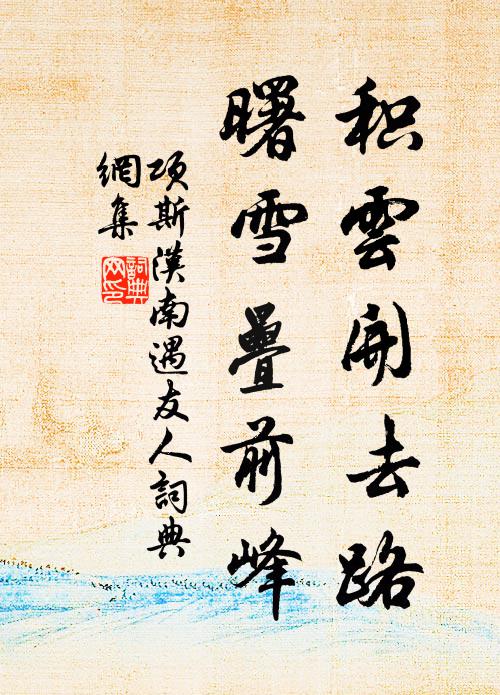 积雲開去路
曙雪疊前峰
項斯漢南遇友人詞典
網集
詞典
网印